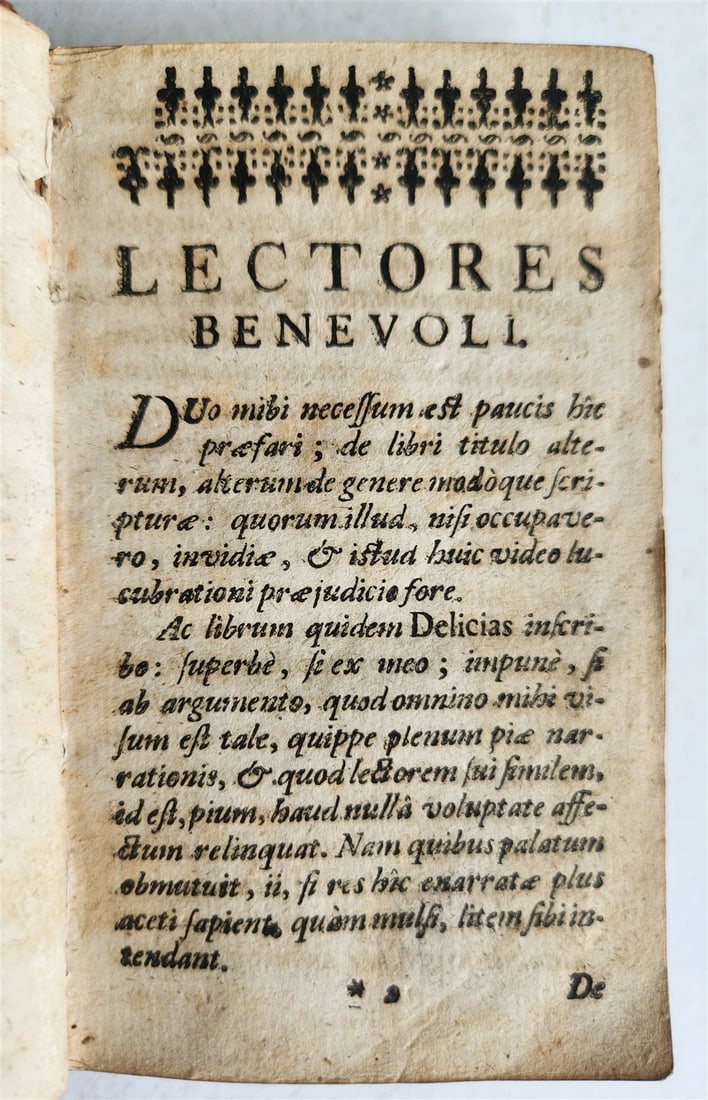 LECTORES
BENEVOLI.
DUo mihi necessum est paucis hîc
præfari ; de libri titulo alte-
rum, alterum de genere modòque scri-
pturæ : quorum illud, nisi occupave-
ro, invidiæ, & istud huic video lu-
cubrationi præjudicio fore.
Ac librum quidem Delicias inscri-
bo : superbè, si ex meo ; impunè, si
ab argumento, quod omnino mihi vi-
sum est tale, quippe plenum piæ nar-
rationis, & quod lectorem sui similem,
id est, pium, haud nullâ voluptate affe-
ctum relinquat. Nam quibus palatum
obmutuit, ii, si res hîc enarratæ plus
aceti sapient, quàm mulsi, litem sibi in-
tendant.
* 2 De